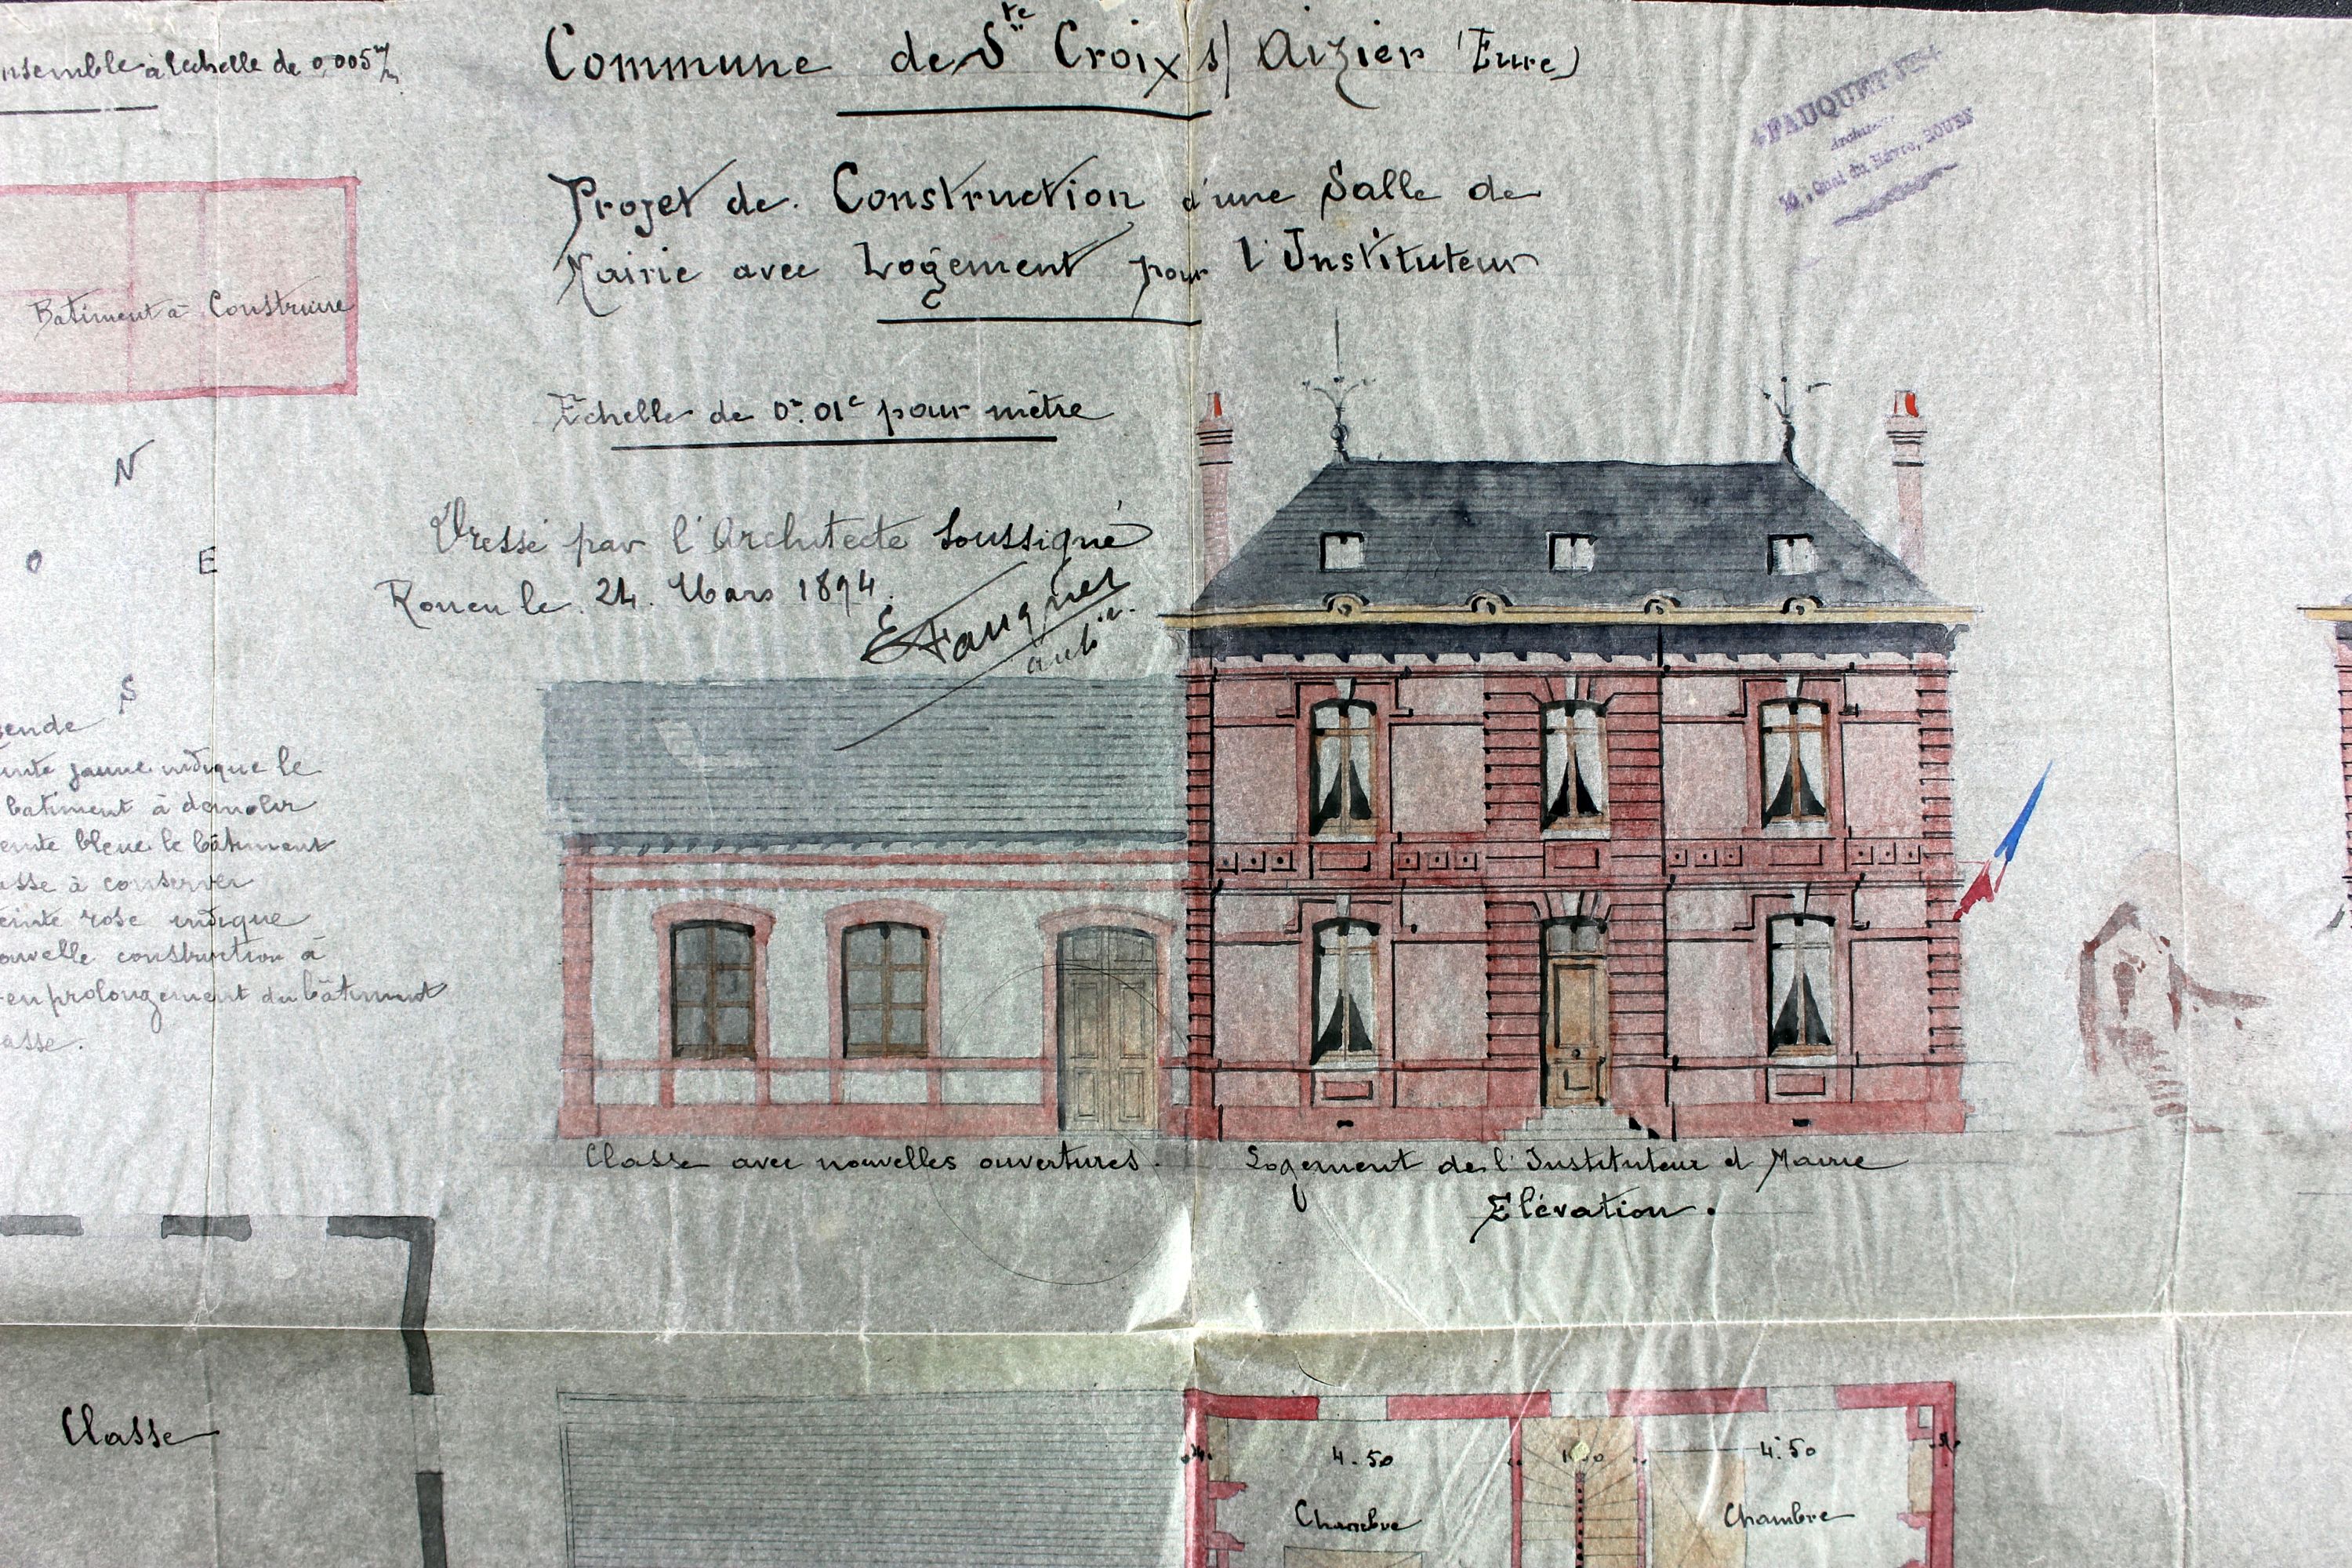 nsemble à l'echelle de 0,005 m/m
Commune de Ste Croix s/ Aizier (Eure)
FAUQUET
Architecte
Quai du Hâvre, ROUEN
Projet de Construction d'une Salle de
Mairie avec Logement pour l'Instituteur
Batiment à Construire
Echelle de 0m.01c pour mètre
N
O E
S
Dressé par l'Architecte Soussigné
Rouen le 24 Mars 1894.
E Fauquet
ende
inte jaune indique le
batiment à démolir
einte bleue le bâtiment
asse à conserver
einte rose indique
ouvelle construction à
en prolongement du bâtiment
asse.
Classe avec nouvelles ouvertures.
Logement de l'Instituteur et Mairie
Elévation.
Classe
4.50
4.50
Chambre
Chambre